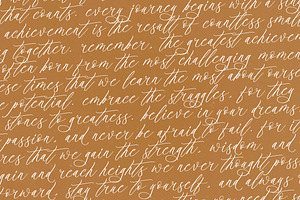 that counts. every journey begins with a sin
achievement is the result of countless small
ng together. remember, the greatest achievem
often born from the most challenging momen
ese times that we learn the most about ourse
e potential. embrace the struggles, for they
stones to greatness. believe in your dreams
passion, and never be afraid to fail. for it
ures that we gain the strength, wisdom, and
gain and reach heights we never thought poss
forward, stay true to yourself, and always